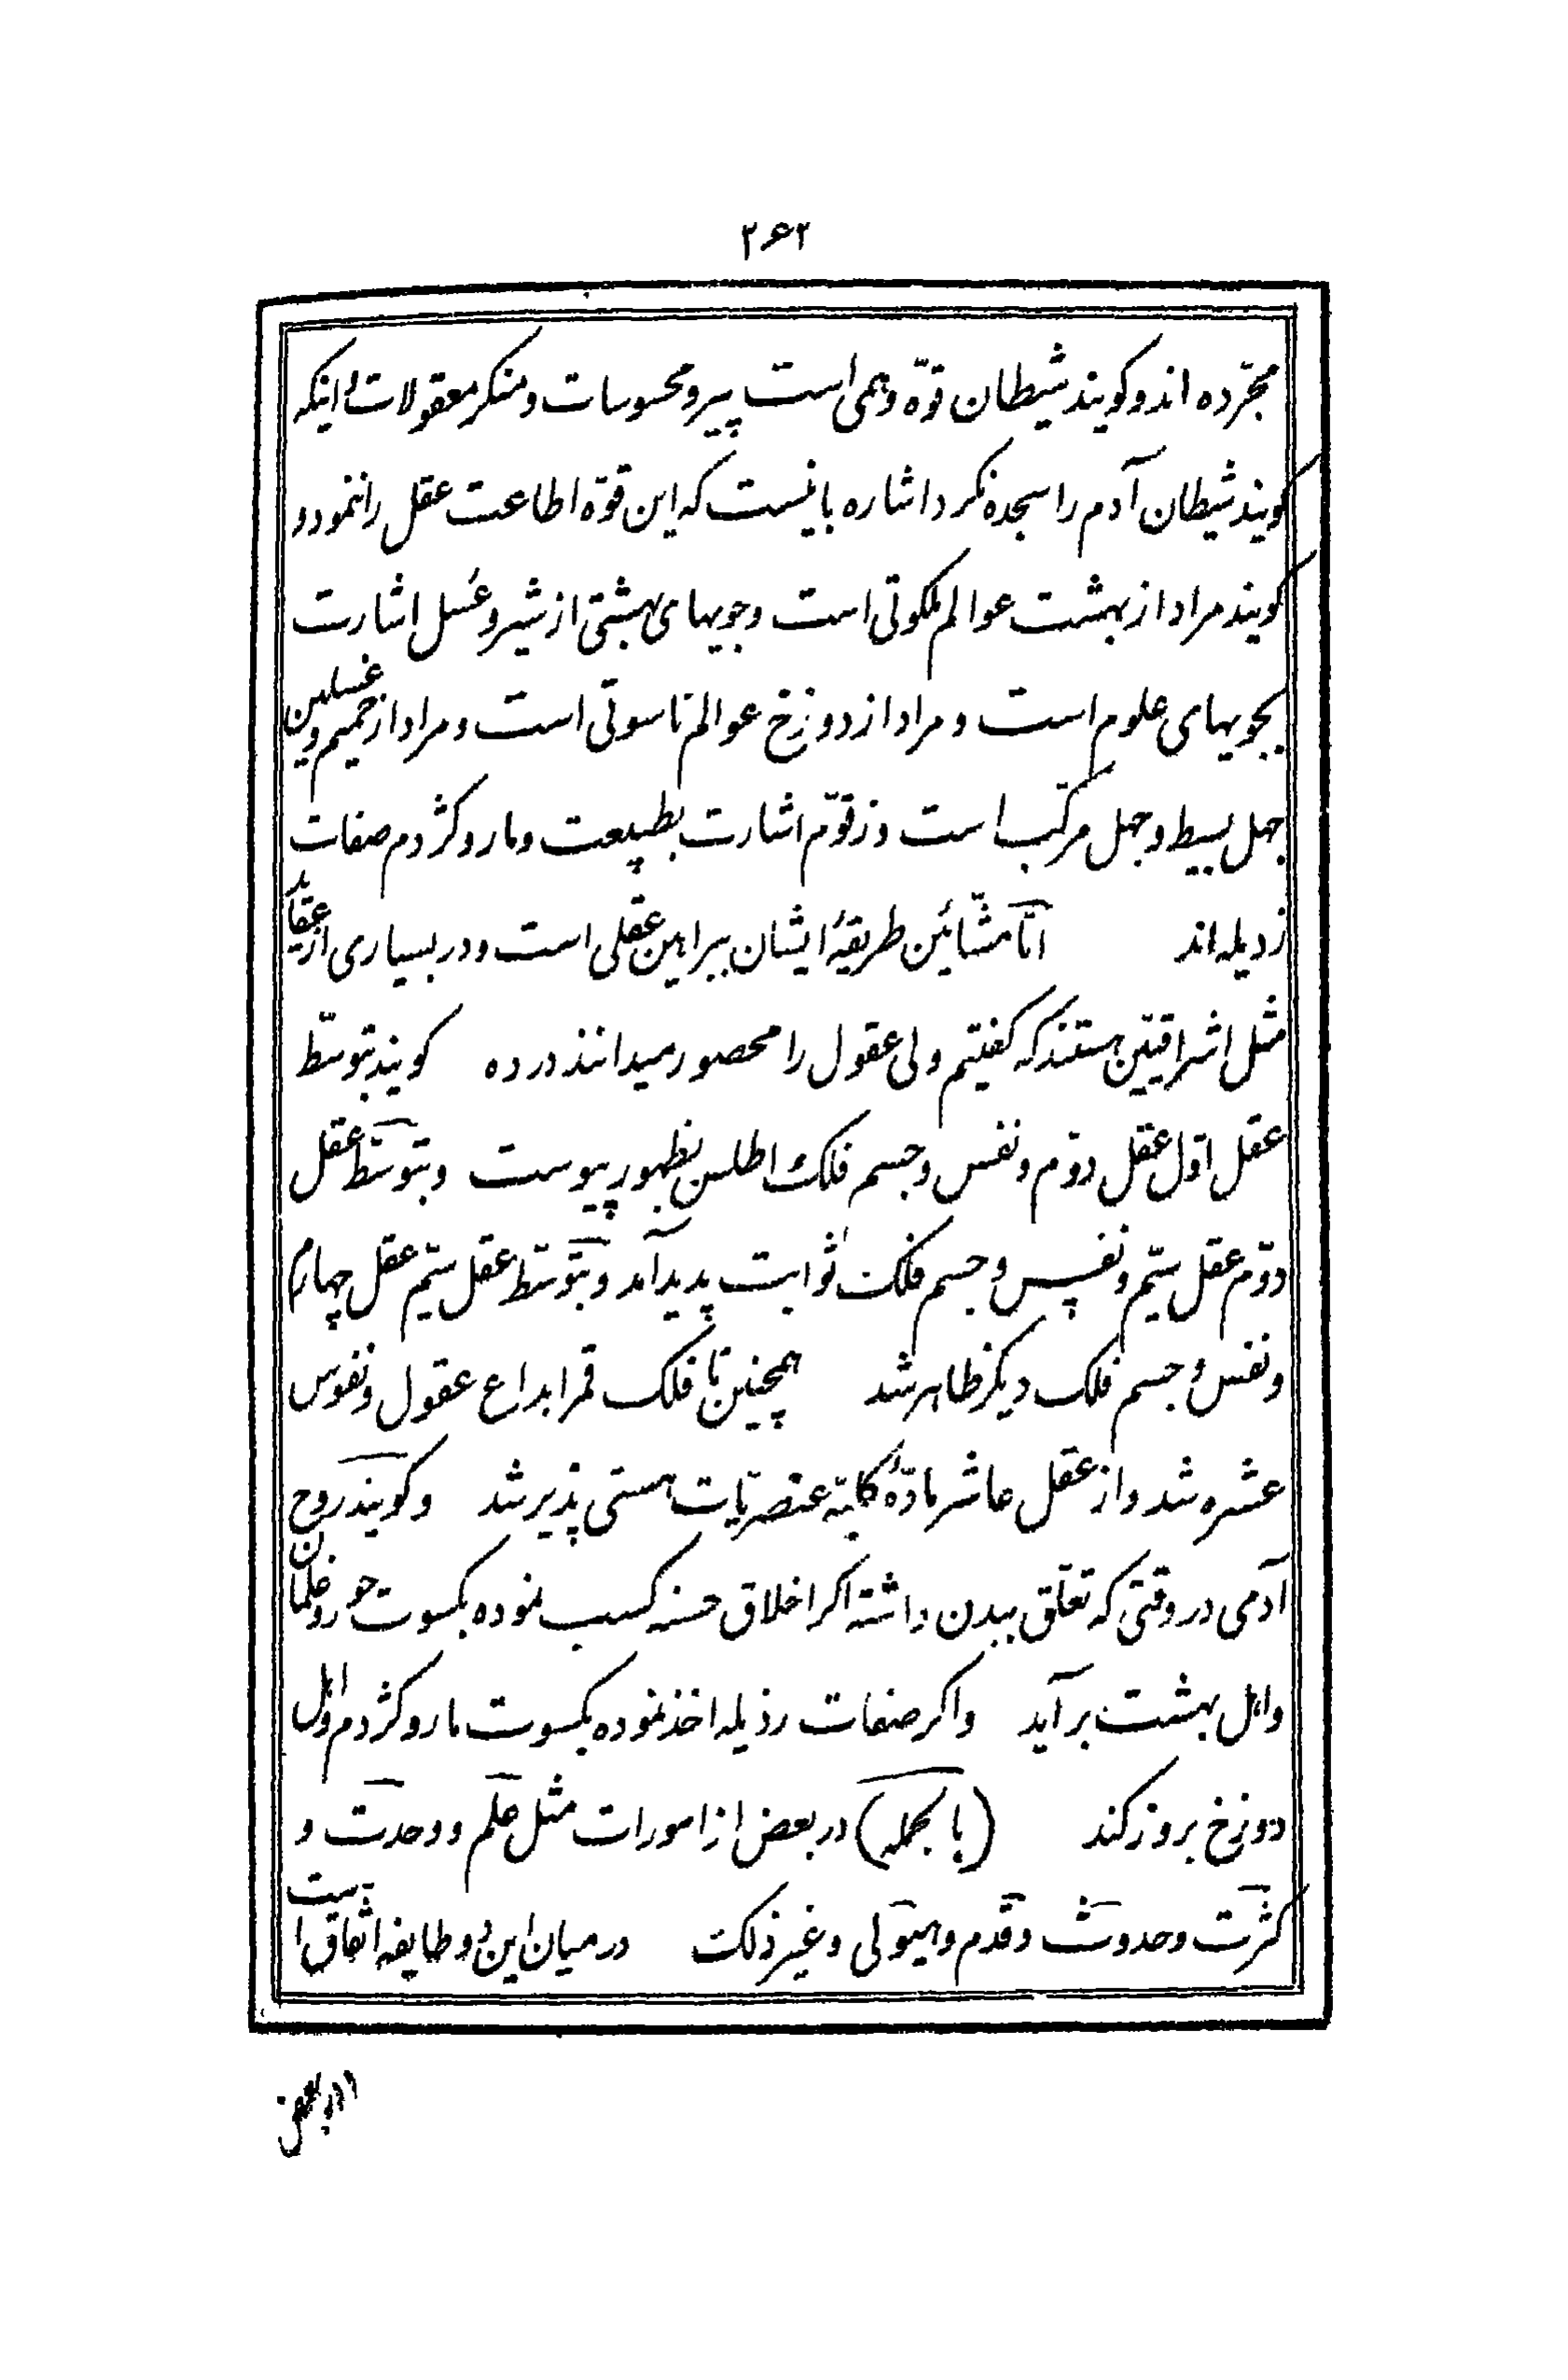 ۲۶۲
مجرّده اند و کویند شیطان قوّه وهمی است پیرو محسوسات و منکر معقولات و اینکه
کویند شیطان آدم را سجده نکرد اشاره باینست که این قوّه اطاعت عقل را ننمود و
کویند مراد از بهشت عوالم ملکوتی است وجویهای بهشتی از شیر و عسل اشارت
بجویهای علوم است و مراد از دوزخ عوالم ناسوتی است و مراد از حمیم و غسلین
جهل بسیط و جهل مرکّب است و زقوّم اشارت بطبیعت و مار و کژدم صفات
رذیله اند امّا مشّائین طریقهٔ ایشان ببراهین عقلی است و در بسیاری از عقاید
مثل اشراقیّین هستند که کفتیم ولی عقول را محصور میدانند در ده کویند بتوسّط
عقل اوّل عقل دوّم و نفس و جسم فلک اطلس بظهور پیوست و بتوسّط عقل
دوّم عقل سیّم و نفس و جسم فلک ثوابت پدید آمد و بتوسّط عقل سیّم عقل چهارم
و نفس و جسم فلک دیکر ظاهر شد همچنین تا فلک قمر ابداع عقول و نفوس
عشره شد و از عقل عاشر مادّهٔ کلیّه عنصریّات هستی پذیر شد و کویند روح
آدمی در وقتی که تعلّق ببدن داشته اکر اخلاق حسنه کسب نموده بکسوت حور و غلمان
و اهل بهشت برآید و اکر صفات رذیله اخذ نموده بکسوت مار و کژدم و اهل
دوزخ بروز کند (بالجمله) در بعض از امورات مثل علم و وحدت و
کثرت و حدوث و قدم و هیولی و غیر ذلک در میان این دو طایفه اتّفاق است